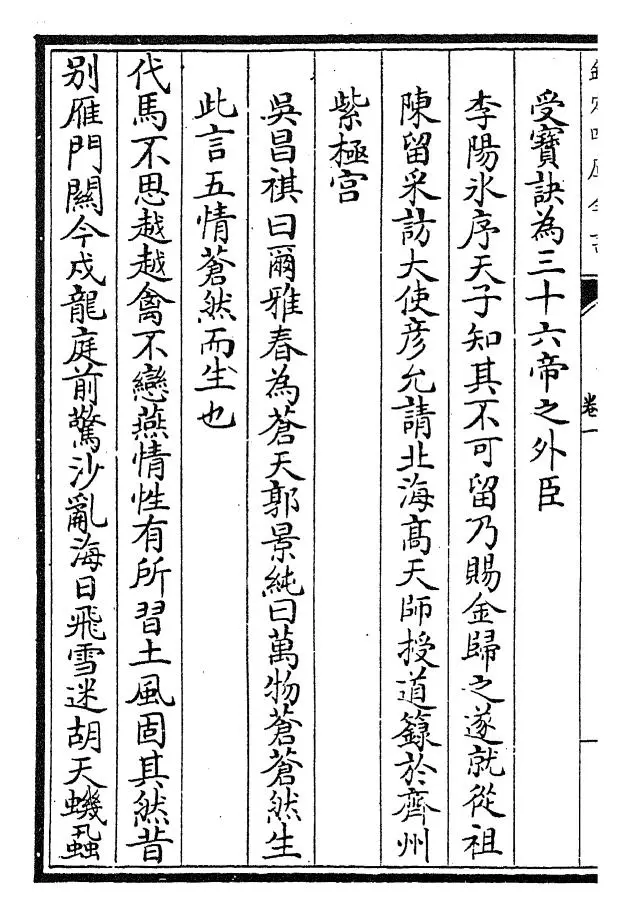 受寶訣為三十六帝之外臣
李陽氷序天子知其不可留乃賜金歸之遂就從祖
陳留采訪大使彦允請北海髙天師授道籙於齊州
紫極宫
吳昌祺曰爾雅春為蒼天郭景純曰萬物蒼蒼然生
此言五情蒼然而生也
代馬不思越越禽不戀燕情性有所習土風固其然昔
别雁門闗今戍龍庭前驚沙亂海日飛雪迷胡天蟣蝨
卷一